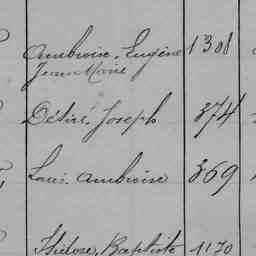 Ambroise, Eugène 1308
Jean Marie
Désiré, Joseph 374
Louis Ambroise 369
Baptiste 1170